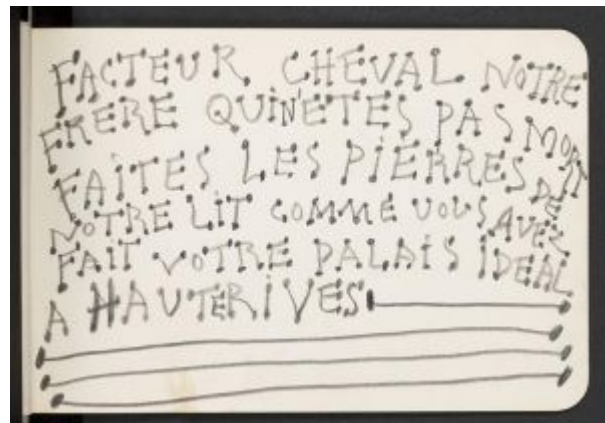 FACTEUR CHEVAL NOTRE
FRERE QUIN'ETES PAS MORT
FAITES LES PIERRES DE
NOTRE LIT COMME VOUS AVEZ
FAIT VOTRE PALAIS IDEAL
A HAUTERIVES